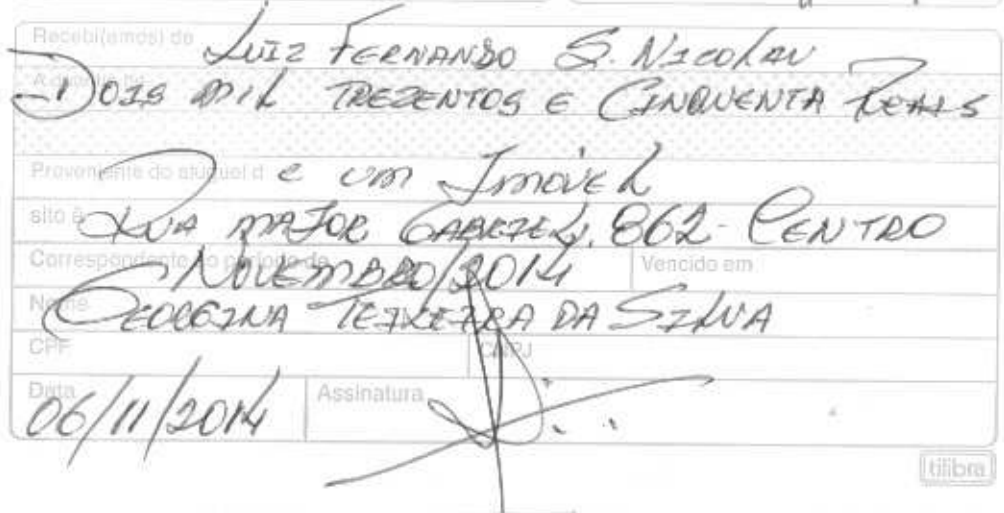 Recebi(emos) de LUIZ FERNANDO S. NICOLAU
A quantia de DOIS MIL TREZENTOS E CINQUENTA REAIS
Proveniente do aluguel d e um Imóvel
sito à RUA MAJOR GABRIEL, 862 - CENTRO
Correspondente ao período de NOVEMBRO/2014 Vencido em
Nome TEIXEIRA DA SILVA
CPF CNPJ
Data 06/11/2014 Assinatura
tilibra